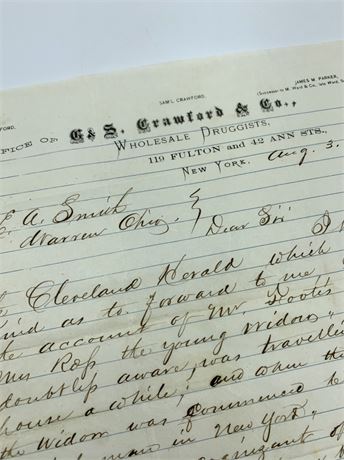 SAM'L CRAWFORD.
JAMES M. PARKER,
(Successor to M. Ward & Co., late Ward, S
FORD,
FFICE OF G & S. Crawford & Co.,
WHOLESALE DRUGGISTS,
119 FULTON and 42 ANN STS.,
NEW YORK, Aug. 3.
E A. Smith
Warren Ohio
Dear Sir I
Cleveland Herald which
ind as to forward to me
account of Mr. Foote's
Mrs Ross the young widow"
doubtless aware, was travelli
house a while; and when the
the Widow was commenced to
man in New York"